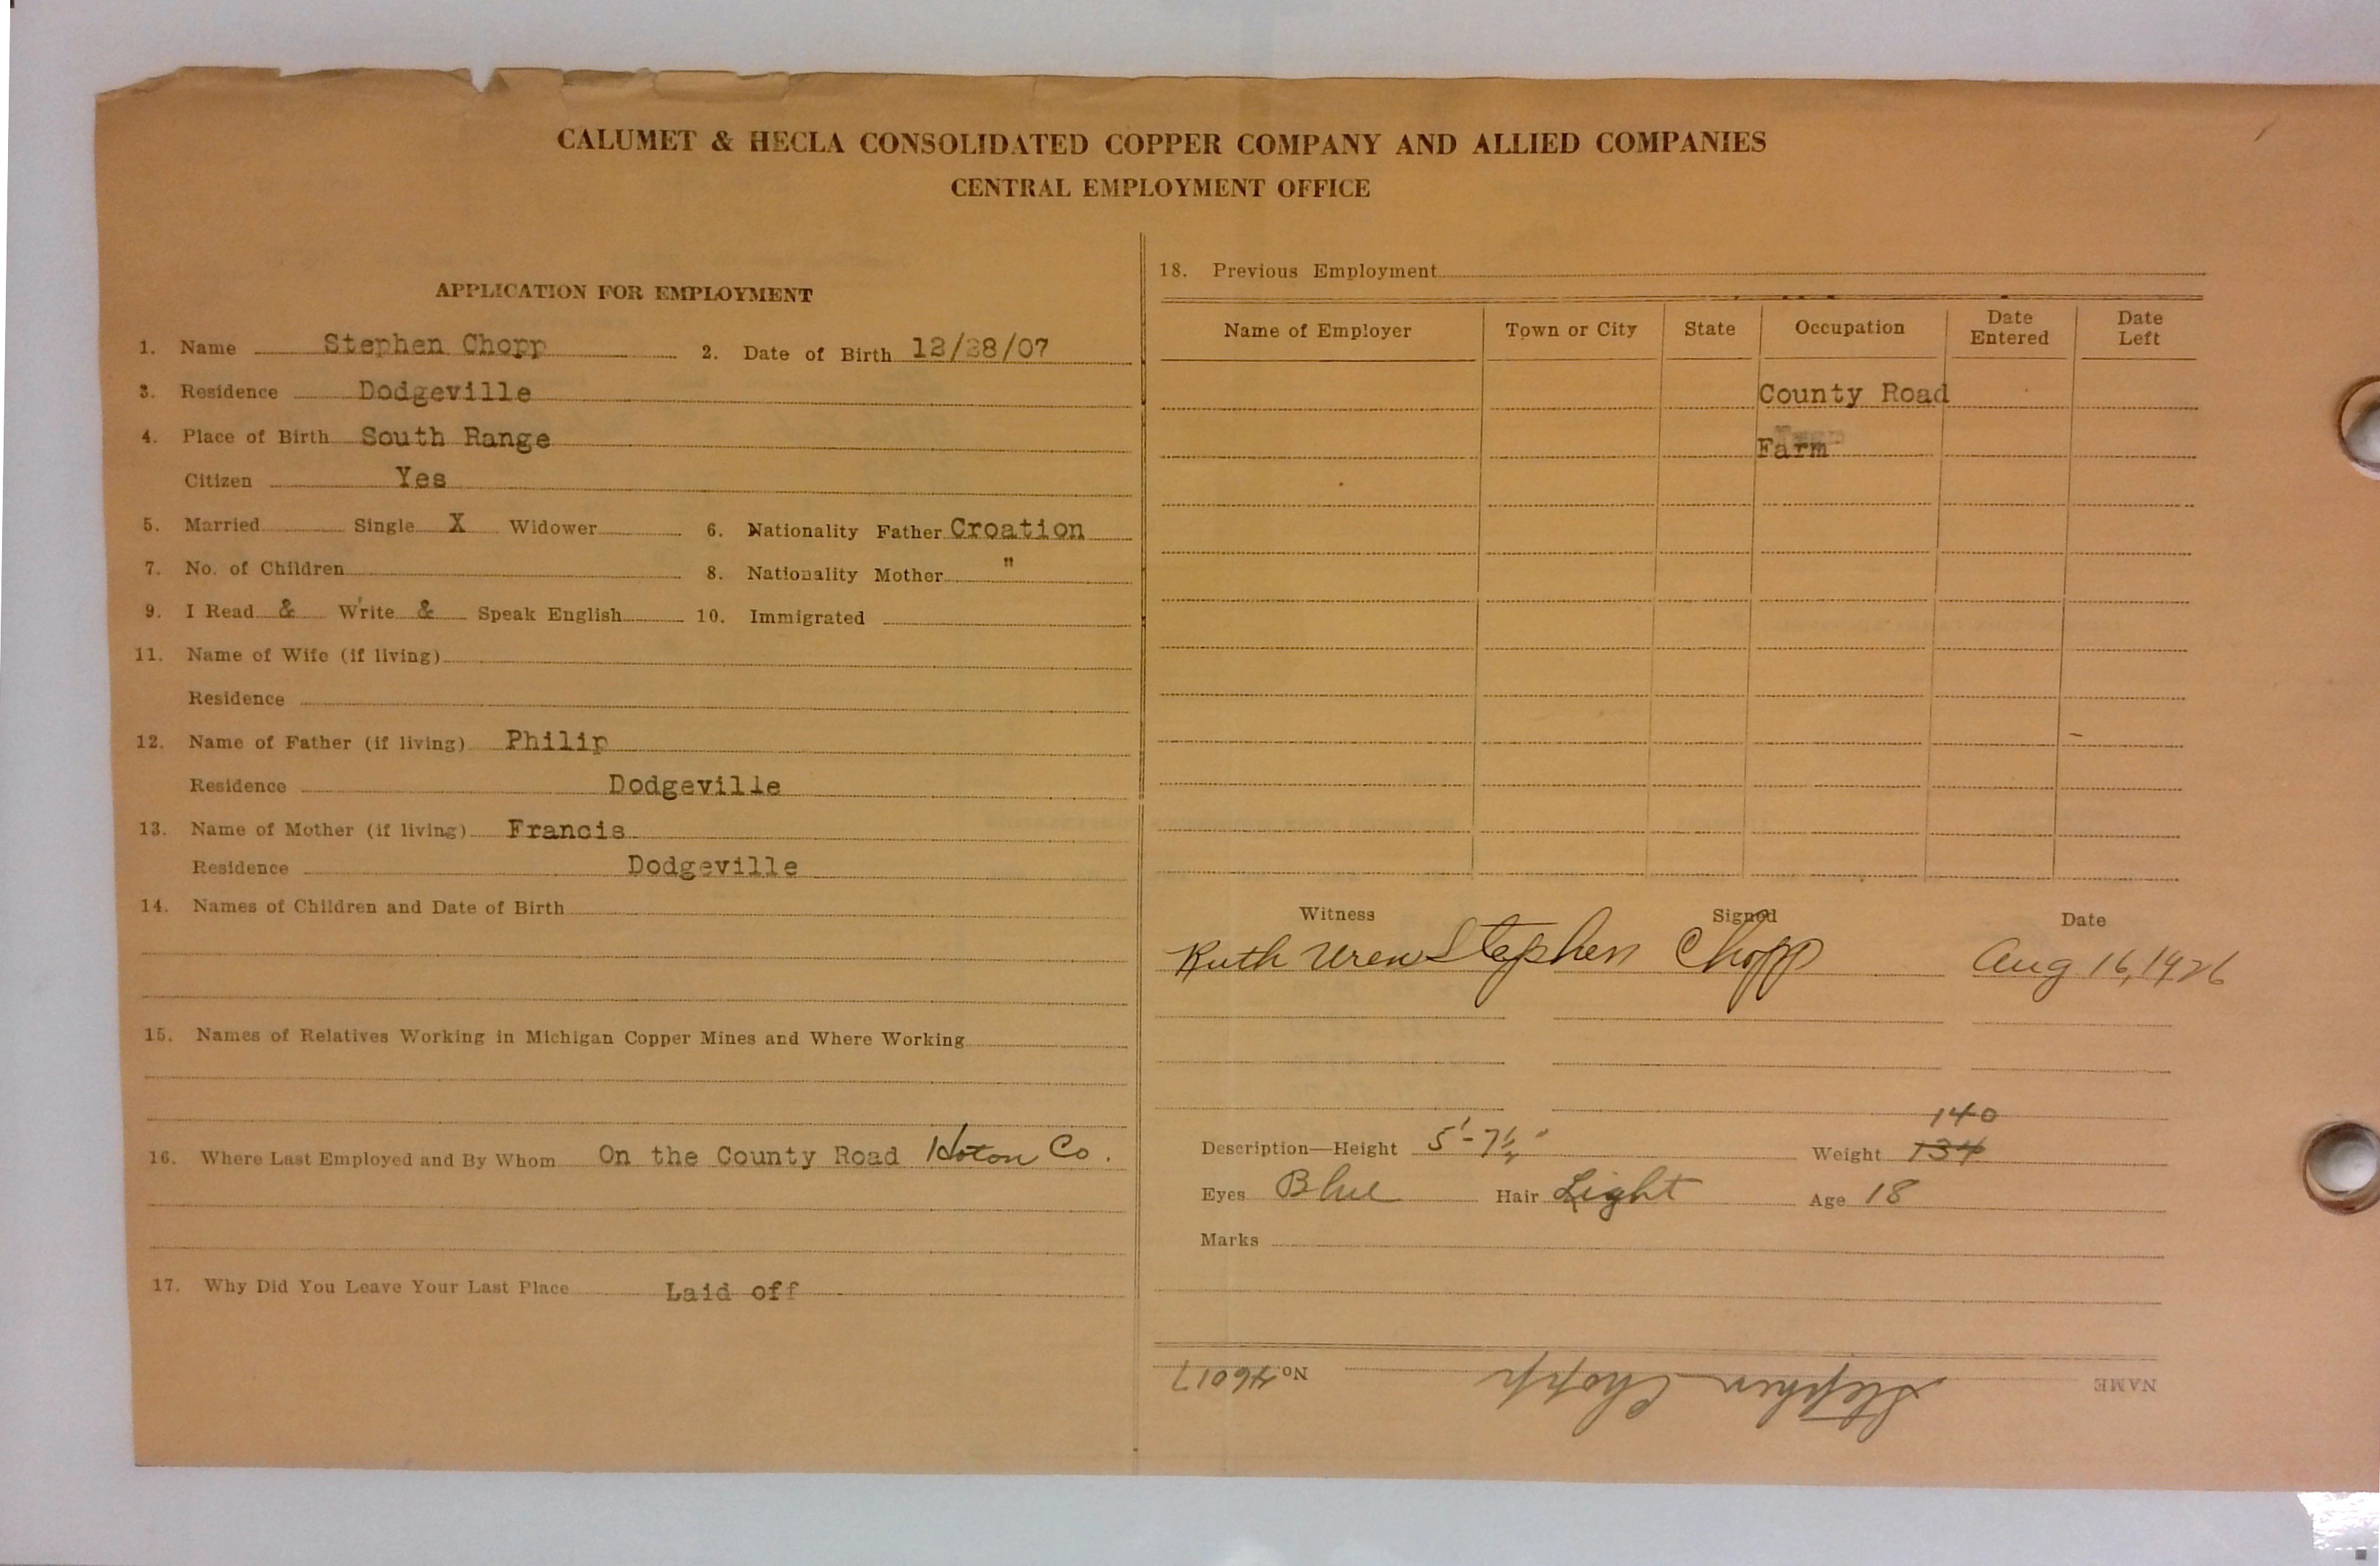 CALUMET & HECLA CONSOLIDATED COPPER COMPANY AND ALLIED COMPANIES
CENTRAL EMPLOYMENT OFFICE
APPLICATION FOR EMPLOYMENT
1. Name Stephen Chopp 2. Date of Birth 12/28/07
3. Residence Dodgeville
4. Place of Birth South Range
Citizen Yes
5. Married Single X Widower 6. Nationality Father Croation
7. No. of Children 8. Nationality Mother "
9. I Read & Write & Speak English 10. Immigrated
11. Name of Wife (if living)
Residence
12. Name of Father (if living) Philip
Residence Dodgeville
13. Name of Mother (if living) Francis
Residence Dodgeville
14. Names of Children and Date of Birth
15. Names of Relatives Working in Michigan Copper Mines and Where Working
16. Where Last Employed and By Whom On the County Road Hoton Co.
17. Why Did You Leave Your Last Place Laid off
18. Previous Employment
Name of Employer Town or City State Occupation Date Entered Date Left
County Road
Farm
Witness Signed Date
Ruth Uren Stephen Chopp Aug 16, 1926
140
Description—Height 5'-7½" Weight 134
Eyes Blue Hair Light Age 18
Marks
NAME Stephen Chopp No 46017